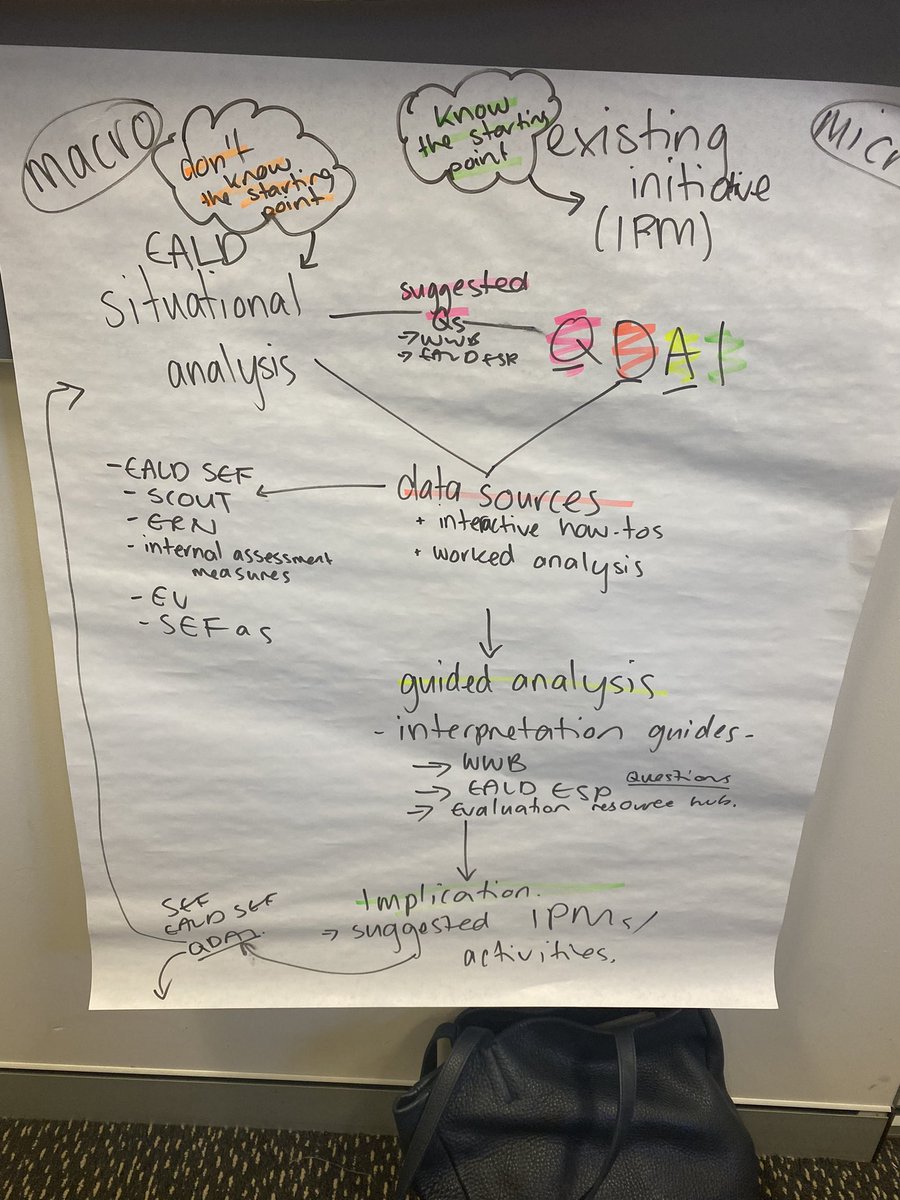 macro
don't
know
the starting
point
Know
the starting
point
existing
initiative
(IPM)
Micr
EALD
situational
analysis
suggested
Qs
→ WWB
→ EALD ESP
QDAI
data sources
+ interactive how-tos
+ worked analysis
- EALD SEF
- SCOUT
- ERN
- internal assessment
measures
- EV
- SEF as
guided analysis
- interpretation guides -
→ WWB
→ EALD ESP Questions
→ Evaluation resource hub.
Implication.
→ suggested IPMs/
activities.
SEF
EALD SEF
QDAI.